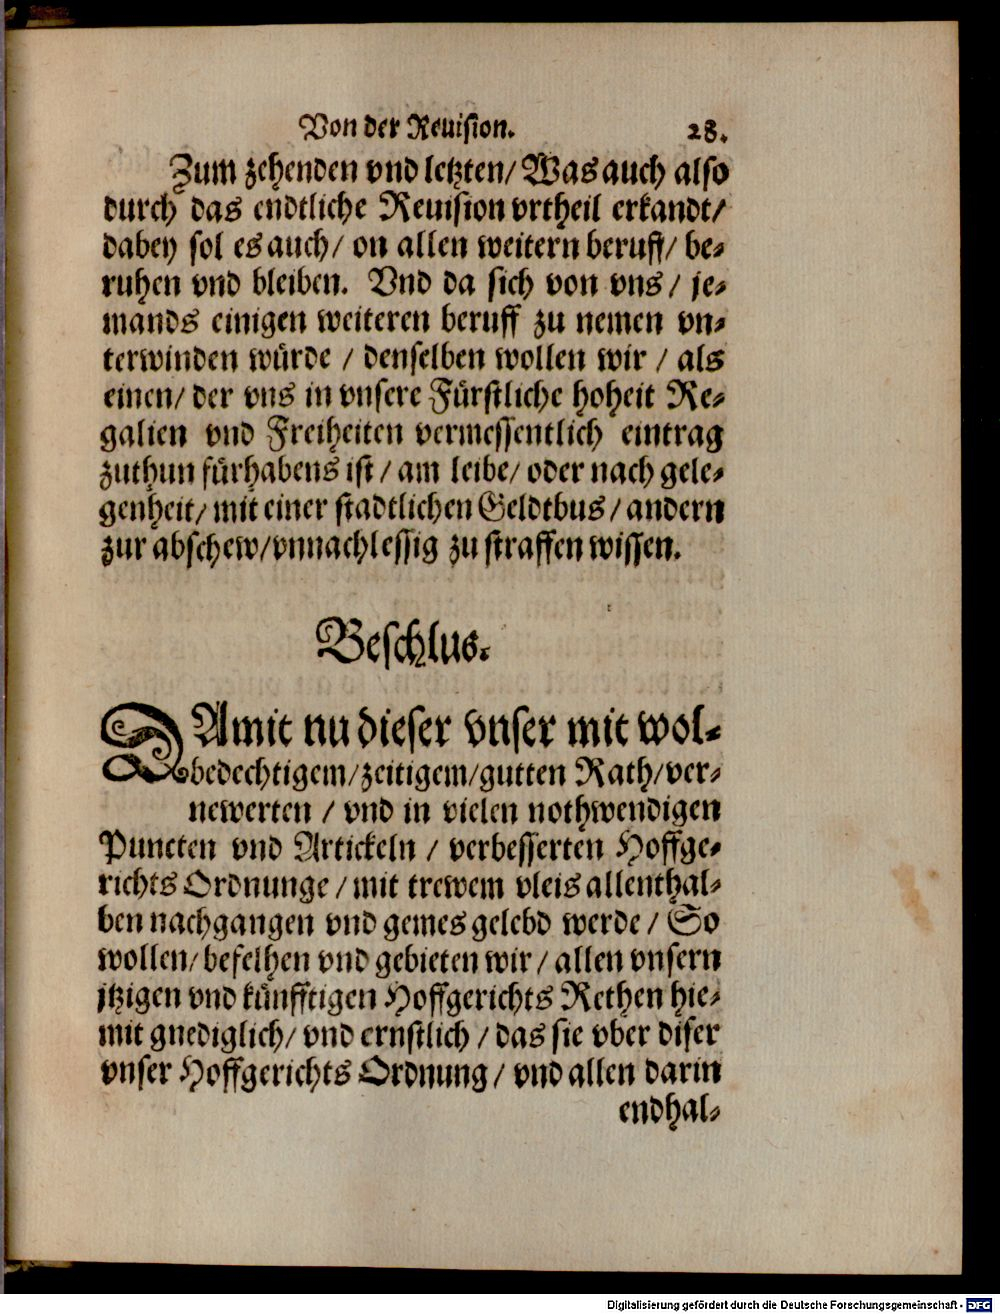 Von der Reuision. 28.
Zum zehenden vnd letzten/ Was auch also
durch das endtliche Reuision vrtheil erkandt/
dabey sol es auch/ on allen weitern beruff/ be-
ruhen vnd bleiben. Vnd da sich von vns/ je-
mands einigen weiteren beruff zu nemen vn-
terwinden würde / denselben wollen wir / als
einen/ der vns in vnsere Fürstliche hoheit Re-
galien vnd Freiheiten vermessentlich eintrag
zuthun fürhabens ist/ am leibe/ oder nach gele-
genheit/ mit einer stadtlichen Geldtbus/ andern
zur abschew/vnnachlessig zu straffen wissen.
Beschlus.
DAmit nu dieser vnser mit wol-
bedechtigem/zeitigem/gutten Rath/ver-
newerten / vnd in vielen nothwendigen
Puncten vnd Artickeln / verbesserten Hoffge-
richts Ordnunge / mit trewem vleis allenthal-
ben nachgangen vnd gemes gelebd werde / So
wollen/ befelhen vnd gebieten wir / allen vnsern
jtzigen vnd künfftigen Hoffgerichts Rethen hie-
mit gnediglich/ vnd ernstlich / das sie vber diser
vnser Hoffgerichts Ordnung / vnd allen darin
endhal-
Digitalisierung gefördert durch die Deutsche Forschungsgemeinschaft - DFG